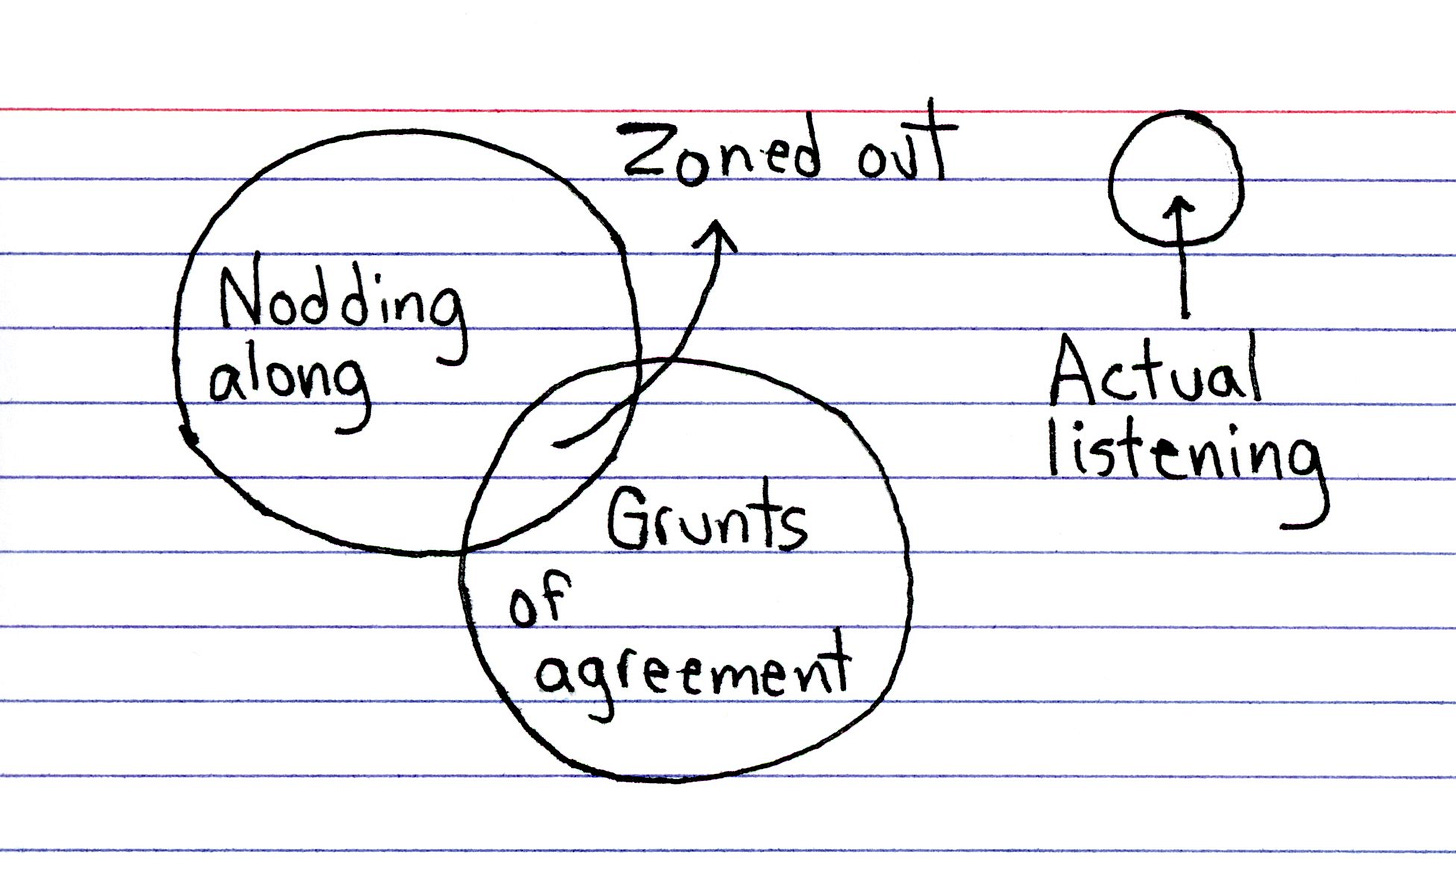 Zoned out
Nodding
along
Actual
listening
Grunts
of
agreement